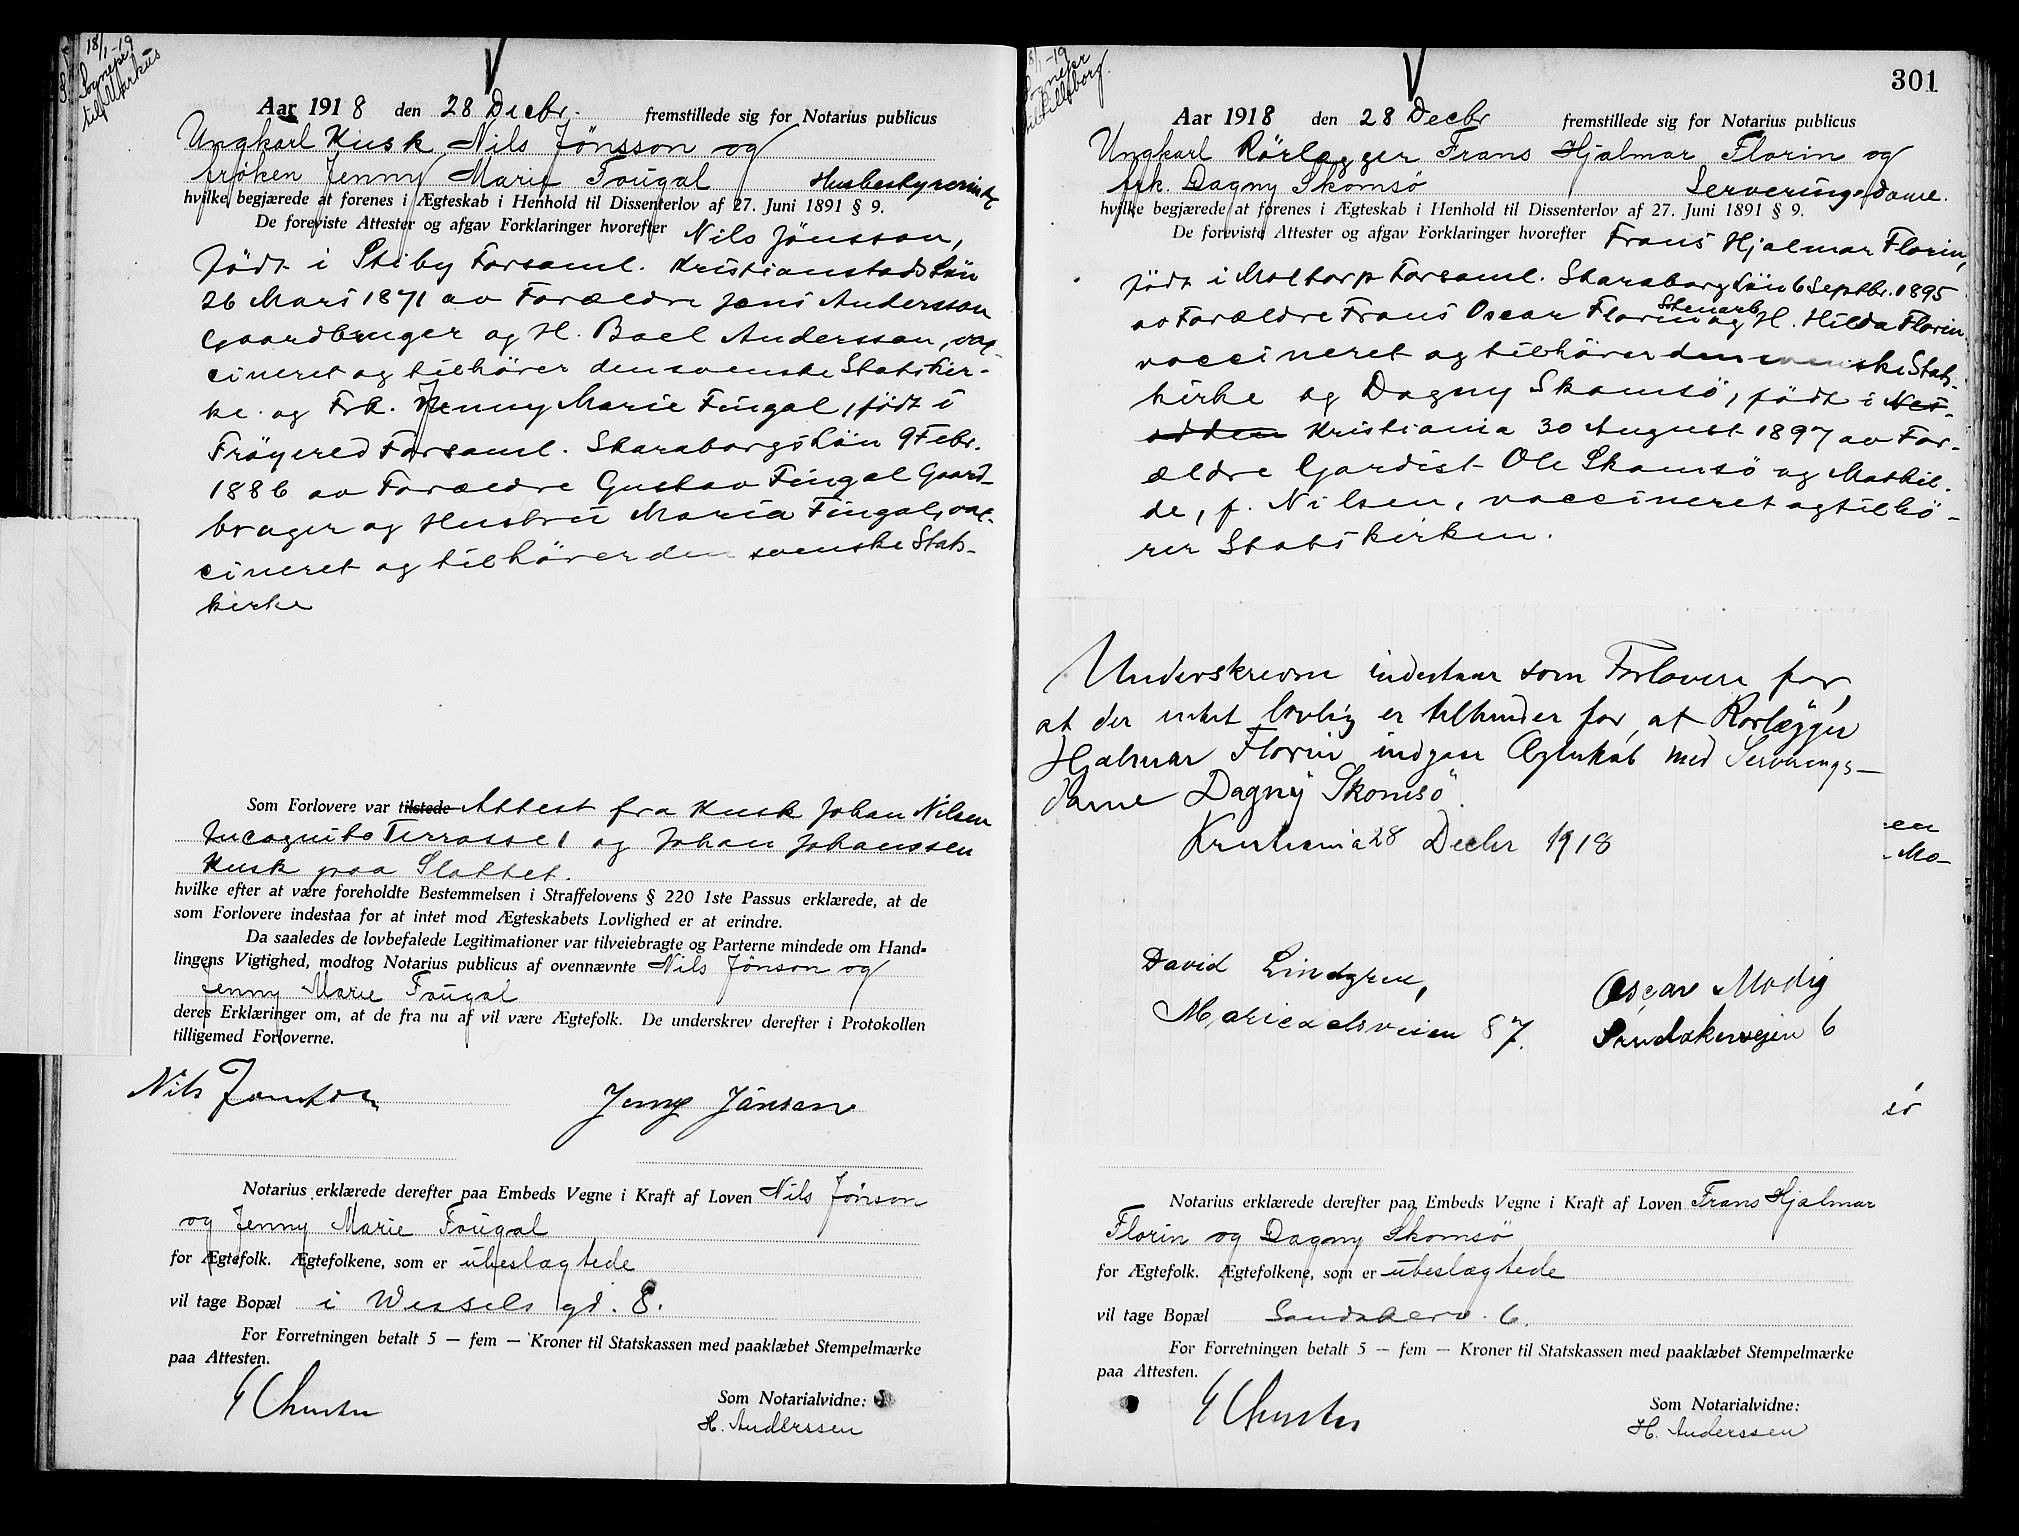 18/1-19
Sognepr
til Markus
Aar 1918 den 28 Decbr. fremstillede sig for Notarius publicus
Ungkarl Kusk Nils Jönsson og
frøken Jenny Marie Fougal Husbestyrerinde
hvilke begjærede at forenes i Ægteskab i Henhold til Dissenterlov af 27. Juni 1891 § 9.
De foreviste Attester og afgav Forklaringer hvorefter Nils Jönsson,
født i Stiby Forsaml. Kristianstads Län
26 Mars 1871 av Forældre Jöns Andersson
Gaardbruger og H. Boel Andersson, vac-
cineret og tilhörer den svenske Statskir-
ke. og Frk. Jenny Marie Fingal, født i
Fröyered Forsaml. Skaraborgs Län 9 Febr.
1886 av Forældre Gustav Fingal Gaard-
bruger og Hustru Maria Fingal, vac-
cineret og tilhörer den svenske Stats-
kirke
Som Forlovere var tilstede Attest fra Kusk Johan Nilsen
Incognito Terrasse 1 og Johan Johanssen
Kusk paa Slottet.
hvilke efter at være foreholdte Bestemmelsen i Straffelovens § 220 1ste Passus erklærede, at de
som Forlovere indestaa for at intet mod Ægteskabets Lovlighed er at erindre.
Da saaledes de lovbefalede Legitimationer var tilveiebragte og Parterne mindede om Hand-
lingens Vigtighed, modtog Notarius publicus af ovennævnte Nils Jönson og
Jenny Marie Fougal
deres Erklæringer om, at de fra nu af vil være Ægtefolk. De underskrev derefter i Protokollen
tilligemed Forloverne.
Nils Jönsson Jenny Jönsson
Notarius erklærede derefter paa Embeds Vegne i Kraft af Loven Nils Jönson
og Jenny Marie Fougal
for Ægtefolk. Ægtefolkene, som er ubeslægtede
vil tage Bopæl i Wessels gd. 8.
For Forretningen betalt 5 — fem — Kroner til Statskassen med paaklæbet Stempelmærke
paa Attesten.
Som Notarialvidne:
H. Anderssen
301
18/1-19
Sognepr
Aar 1918 den 28 Decbr fremstillede sig for Notarius publicus
Ungkarl Rörlegger Frans Hjalmar Florin og
frk. Dagny Skomsö Serveringsdame.
hvilke begjærede at forenes i Ægteskab i Henhold til Dissenterlov af 27. Juni 1891 § 9.
De foreviste Attester og afgav Forklaringer hvorefter Frans Hjalmar Florin,
født i Moltorp Forsaml. Skaraborg Län 6 Septbr. 1895
av Forældre Frans Oscar Florin Stenarb. og H. Hilda Florin
vaccineret og tilhörer den svenske Stats-
kirke og Dagny Skomsö, født i Nes-
odden Kristiania 30 August 1897 av For-
ældre Gardist Ole Skomsö og Mathil-
de, f. Nilsen, vaccineret og tilhö-
rer Statskirken.
Underskrevne indestaar som Forlovere for,
at der intet lovlig er tilhinder for, at Rørlægger
Hjalmar Florin indgaar Ægteskab med Serverings-
dame Dagny Skomsö.
Kristiania 28 Decbr 1918
en
Mo-
David Lindgren,
Maridalsveien 87.
Oscar Modig
Sandakerveien 6
sö
Notarius erklærede derefter paa Embeds Vegne i Kraft af Loven Frans Hjalmar
Florin og Dagny Skomsö
for Ægtefolk. Ægtefolkene, som er ubeslægtede
vil tage Bopæl Sandakerv. 6.
For Forretningen betalt 5 — fem — Kroner til Statskassen med paaklæbet Stempelmærke
paa Attesten.
Som Notarialvidne:
H. Anderssen